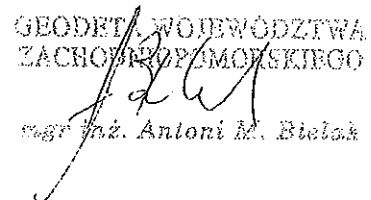 GEODETA WOJEWÓDZTWA
ZACHODNIOPOMORSKIEGO
mgr inż. Antoni M. Bielak